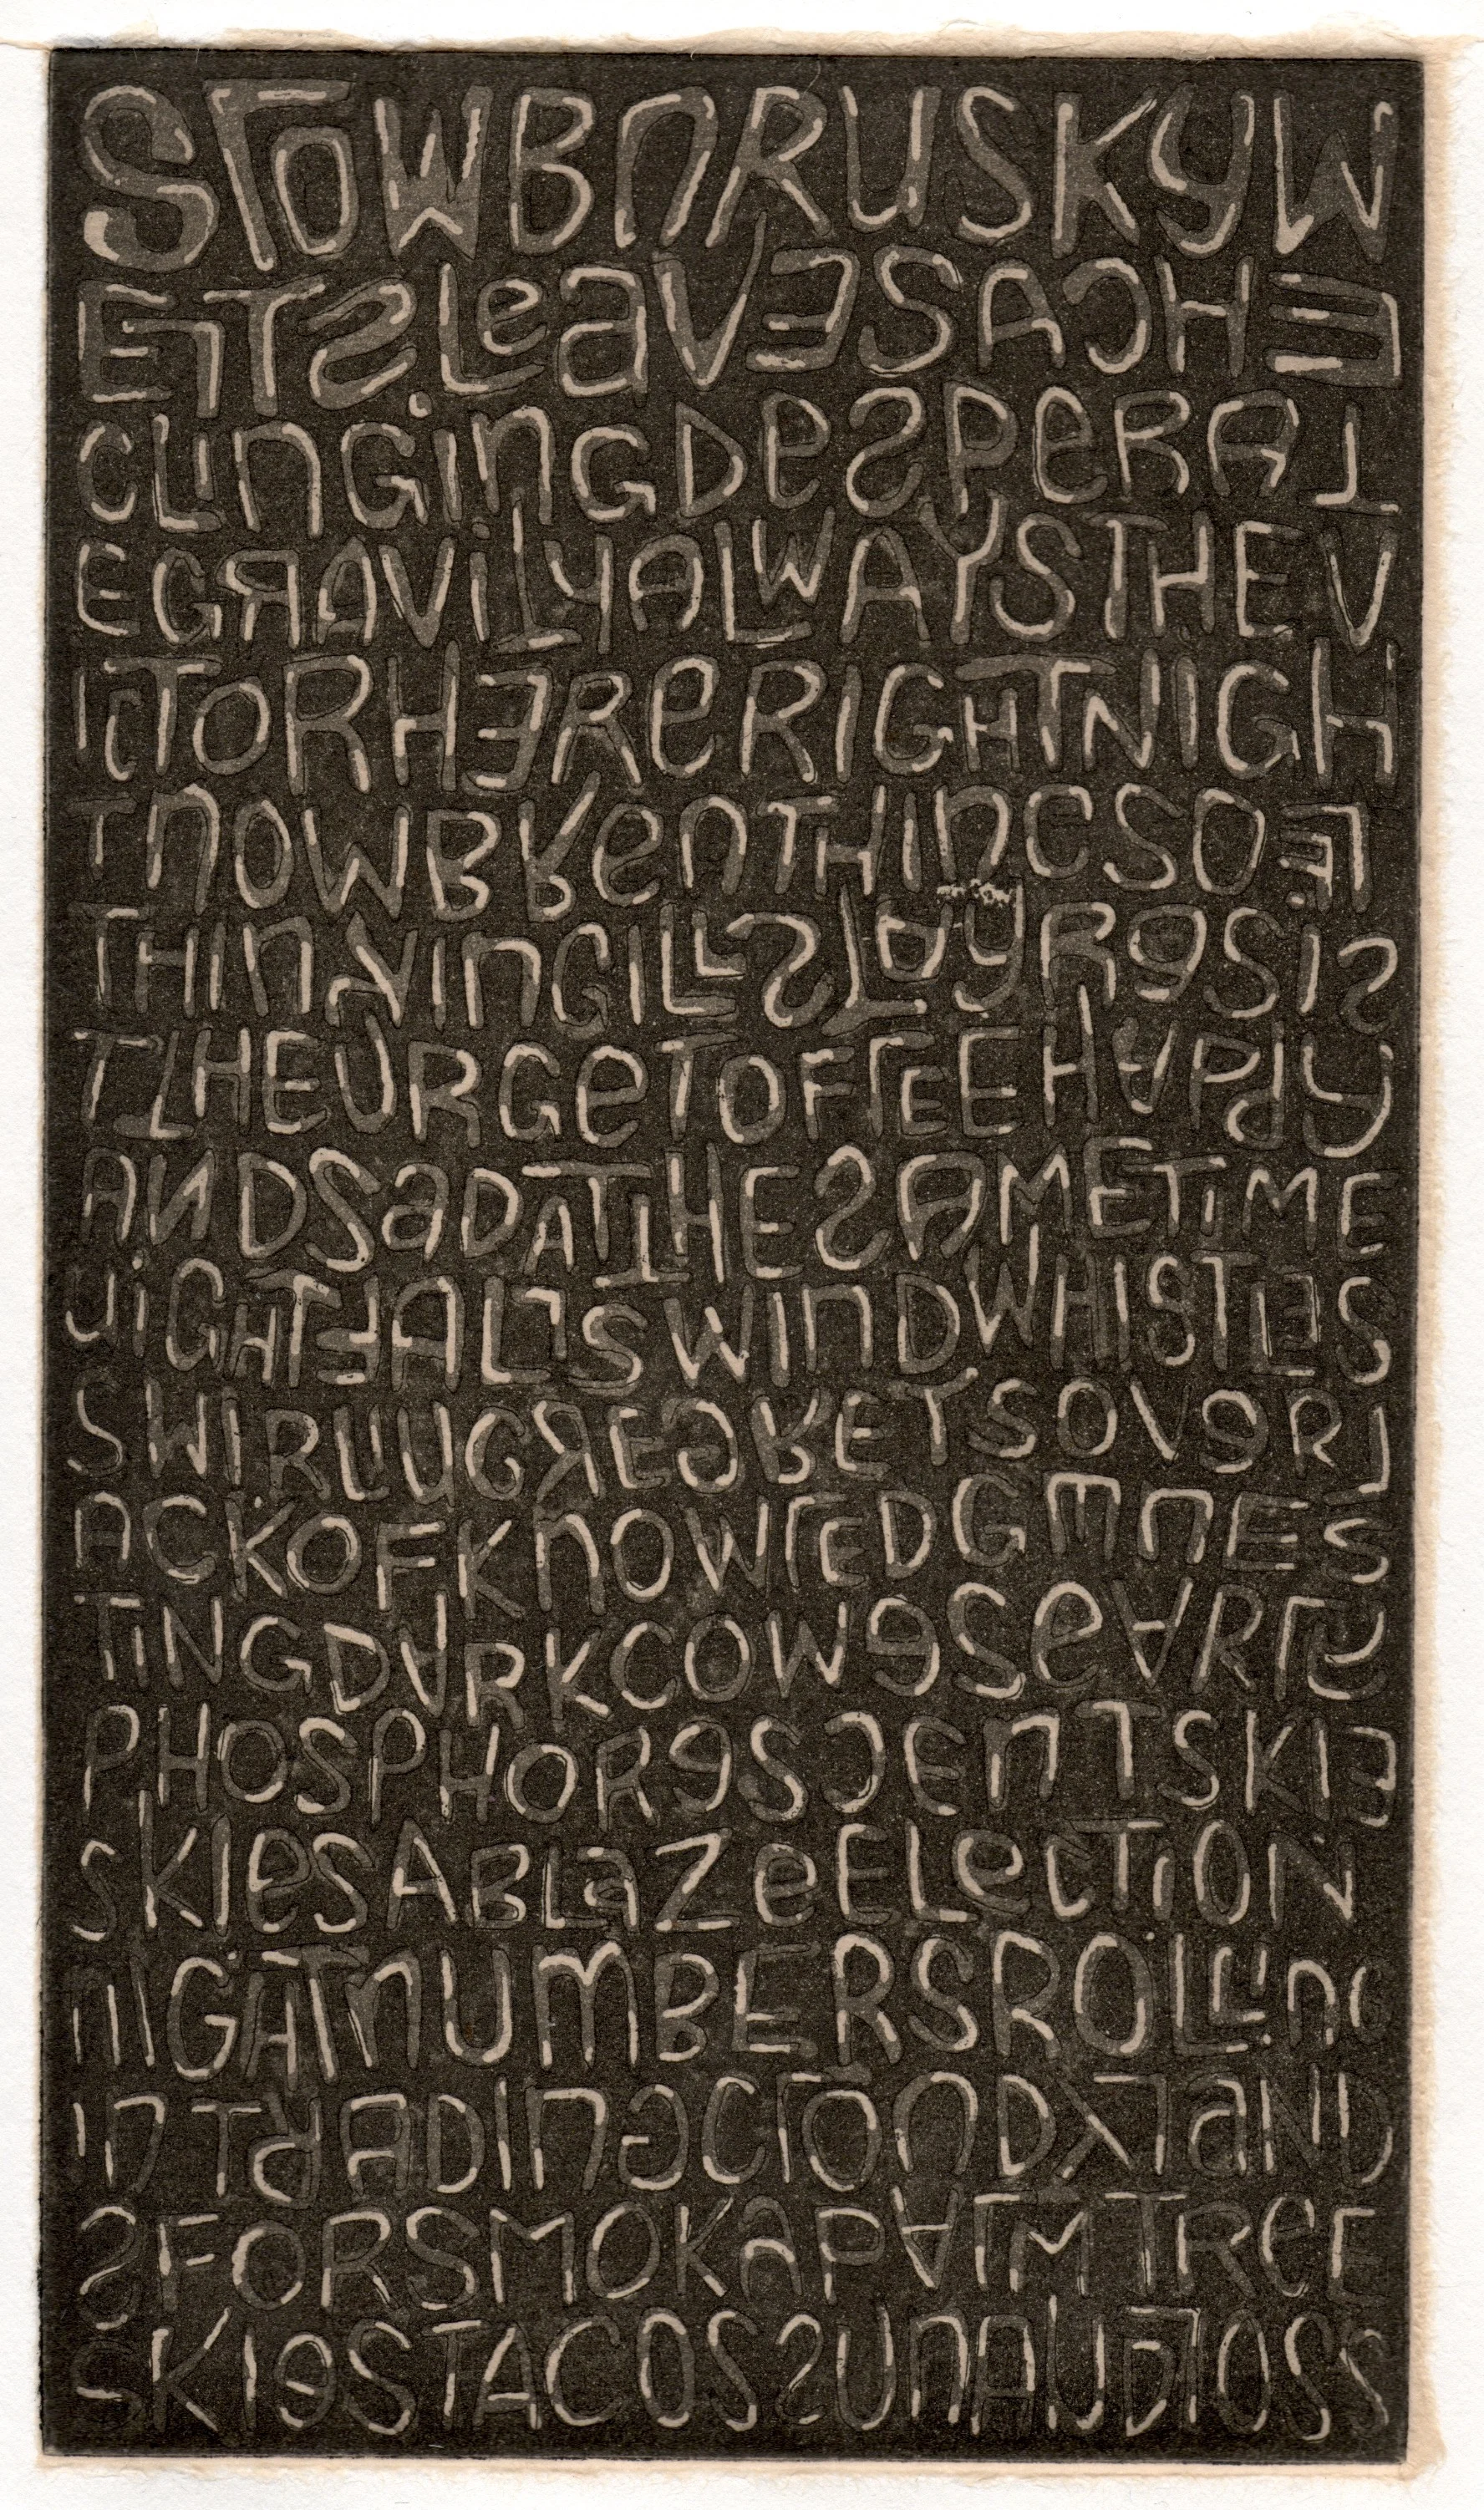 SLOWBnRUSKYW
ELTSLeaVESACHE
CLInGinGDeSPeRAT
EGRAViTYALWAYSTHEV
ICTORHEReRIGHTNIGH
TnOWBRenTHInGSOEL
THInKInGILLSTAYReSIS
TTHEURGeTOFLEEHAPPY
ANDSaDATTHESAMETiME
niGHTFALLSWInDWHISTLES
SWIRLInGREGRETSOVeRL
ACKOFKnOWLEDGEnES
TiNGDARKCOWeSeARLY
PHOSPHOReSCEnTSKIE
SKIeSABLaZeELeCTiON
nIGHTnUMBERSROLLinG
InTRADInGCLOUDYLaND
SFORSMOKaPALMTReE
SKIeSTACOSSUnAUDIOSS